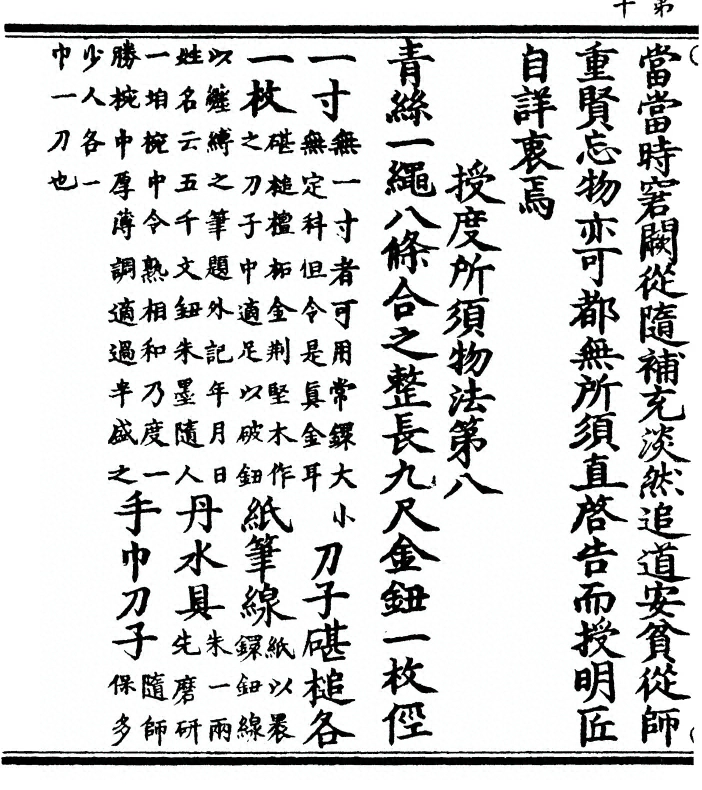 第十
當當時窘闕從隨補充淡然追道安貧從師
重賢忘物亦可都無所須直啓告而授明匠
自詳衷焉
授度所須物法第八
青絲一繩八條合之整長九尺金鈕一枚徑
一寸無一寸者可用常鐶大小無定科但令是真金耳刀子碪槌各
一枚碪槌檀柘金荆堅木作之刀子中適足以破鈕紙筆線紙以褁鐶鈕線
以纏縛之筆題外記年月日姓名云五千文鈕朱墨隨人丹水具朱一兩先磨研
一坩椀中令熟相和乃度一勝椀中厚薄調適過半盛之手巾刀子隨師保多
少人各一巾一刀也